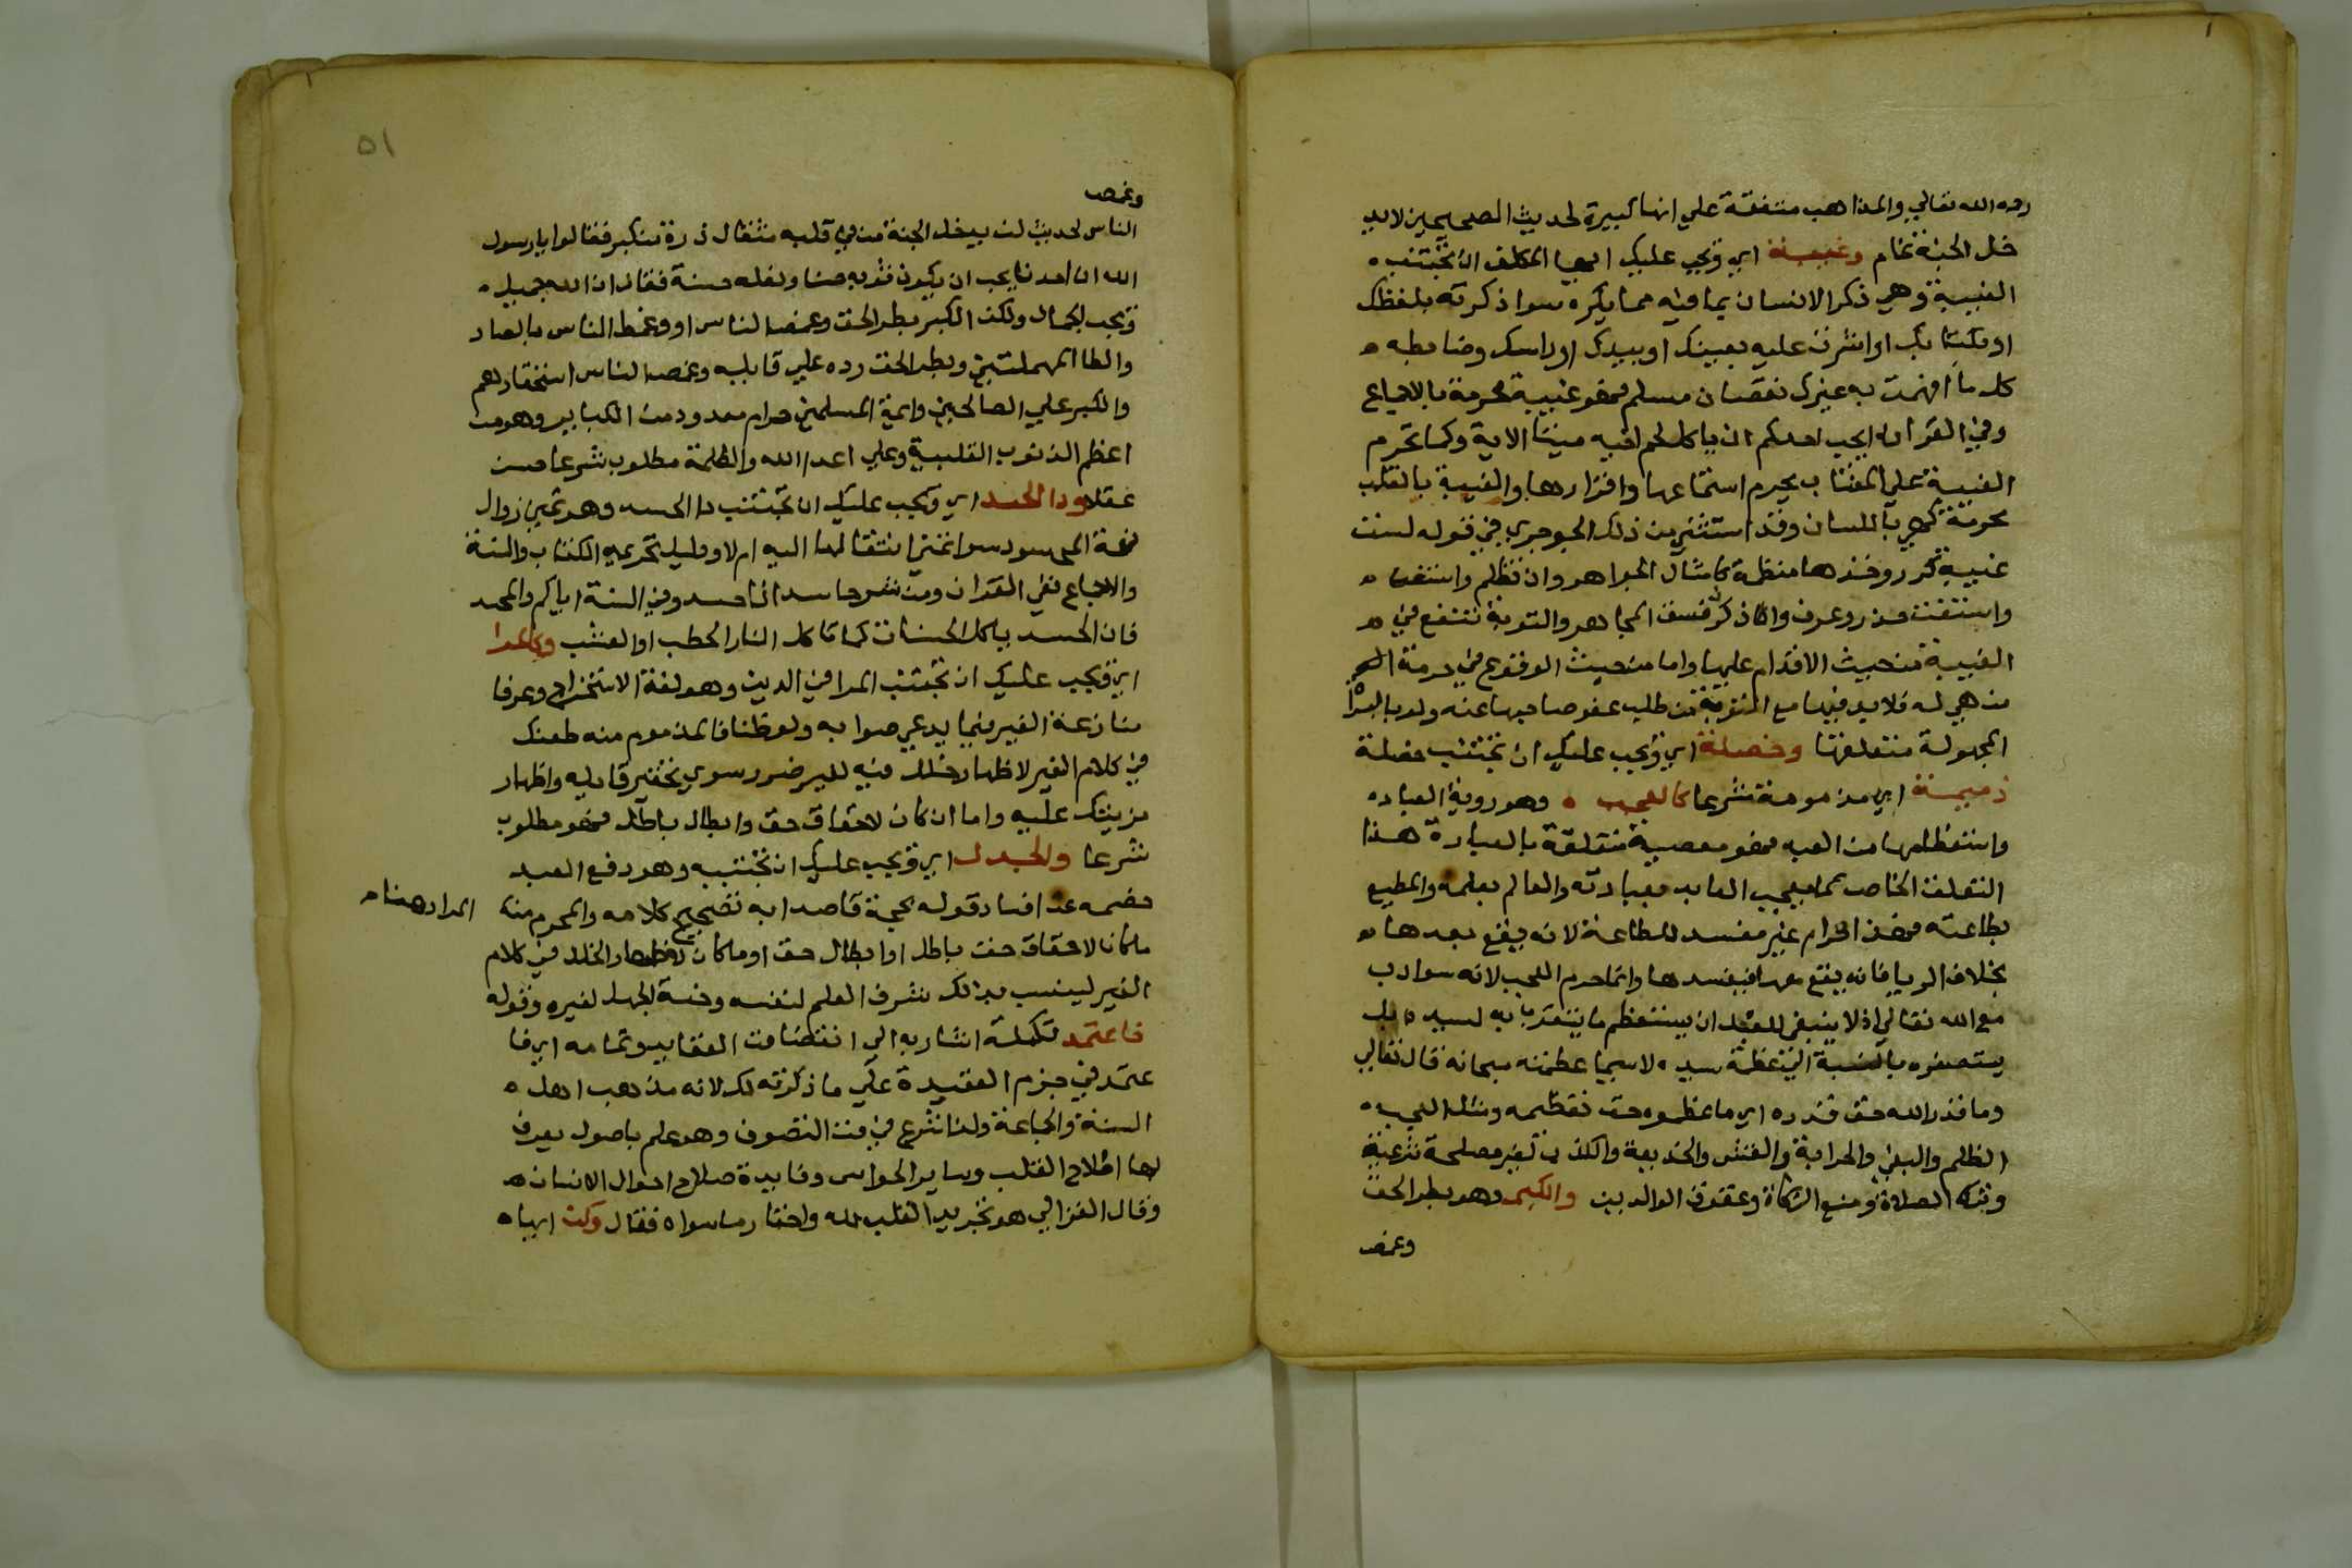 رحمه الله تعالي والمذاهب متفقة علي انها كبيرة لحديث الصحيحين لا يد
خل الجنة نمام وغيبة اي ويجب عليك ايها المكلف ان تجتنب
الغيبة وهي ذكر الانسان بما فيه مما يكره سوا ذكرته بلفظك
او بكتابك او اشرت عليه بعينك او بيدك او راسك وضابطه
كل ما افهمت به غيرك نقصان مسلم فهو غيبة محرمة بالاجماع
وفي القران ايحب احدكم ان ياكل لحم اخيه ميتا الاية وكما تحرم
الغيبة علي المغتاب يحرم استماعها واقرارها والغيبة بالقلب
محرمة كهي باللسان وقد استثني من ذلك الجوجري في قوله لست
غيبة كرر وخذها منظمة كامثال الجواهر وان تظلم واستغث
واستفت حذر وعرف واذكرن فسق المجاهر والتوبة تنفع في
الغيبة من حيث الاقدام عليها واما من حيث الوقوع في حرمة
من هي له فلا بد فيها مع التوبة من طلب عفو صاحبها عنه ولو بالبراة
المجهولة متعلقها وخصلة اي ويجب عليك ان تجتنب خصلة
ذميمة اي مذمومة شرعا كالعجب وهو روية العباده
واستعظامها من العبد فهو معصية متعلقة بالعبادة هذا
التعلق الخاص كما يعجب العابد بعبادته والعالم بعلمه والمطيع
بطاعته فهذا حرام غير مفسد للطاعة لانه يقع بعدها
بخلاف الريا فانه يقع معها فيفسدها وانما حرم العجب لانه سوادب
مع الله تعالي اذ لا ينبغي للعبد ان يستعظم ما يتقرب به لسيده بل
يستصغره بالنسبة الي عظمة سيده لا سيما عظمته سبحانه قال تعالي
وما قدروا الله حق قدره اي ما عظموه حق تعظيمه ومثل العجب
الظلم والبغي والحرابة والغش والخديعة والكذب لغير مصلحة شرعية
وترك الصلاة ومنع الزكاة وعقوق الوالدين والكبر وهو بطر الحق
وغمص
٥١
وغمص
الناس لحديث لن يدخل الجنة من في قلبه مثقال ذرة من كبر فقالوا يا رسول
الله ان احدنا يحب ان يكون ثوبه حسنا ونعله حسنة فقال ان الله جميل
ويحب الجمال ولكن الكبر بطر الحق وغمص الناس او وغمط الناس بالصاد
والطا المهملتين وبطر الحق رده علي قايله وغمص الناس استحقارهم
والكبر علي الصالحين وايمة المسلمين حرام معدود من الكباير وهو من
اعظم الذنوب القلبية وعلي اعدا الله والظلمة مطلوب شرعا حسن
عقلا ودا الحسد اي ويجب عليك ان تجتنب دا الحسد وهو تمني زوال
نعمة المحسود سوا تمني انتقالها اليه ام لا ودليل تحريمه الكتاب والسنة
والاجماع ففي القران ومن شر حاسد اذا حسد وفي السنة اياكم والحسد
فان الحسد ياكل الحسنات كما تاكل النار الحطب او العشب وكالمرا
اي ويجب عليك ان تجتنب المرا في الدين وهو لغة الاستخراج وعرفا
منازعة الغير فيما يدعي صوابه ولو ظنا فالمذموم منه طعنك
في كلام الغير لاظهار خلل فيه لغير ضرر سوي تحقير قايله واظهار
مزيتك عليه واما ان كان لاحقاق حق وابطال باطل فهو مطلوب
شرعا والجدل اي ويجب عليك ان تجتنبه وهو دفع العبد
خصمه عن افساد قوله بحجة قاصدا به تصحيح كلامه والمحرم منه
المراد هنا
ما كان لاحقاق باطل او ابطال حق او ما كان لاظهار الخلل في كلام
الغير لينسب بذلك شرف العلم لنفسه وخسة الجهل لغيره وقوله
فاعتمد تكملة اشار به الي انقضا فن العقايد وتمامه اي فا
عتمد في جزم العقيدة علي ما ذكرته لك لانه مذهب اهل
السنة والجماعة ولنا نشرع في فن التصوف وهو علم باصول يعرف
بها اصلاح القلب وساير الحواس وفايدة صلاح احوال الانسان
وقال الغزالي هو تجريد القلب لله واحتقار ما سواه فقال وكن ايها